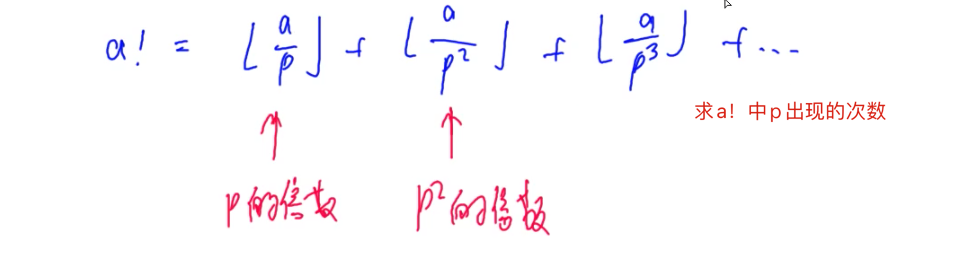 a! = ⌊a/p⌋ + ⌊a/p²⌋ + ⌊a/p³⌋ + ...
求a! 中p出现的次数
p的倍数 p²的倍数